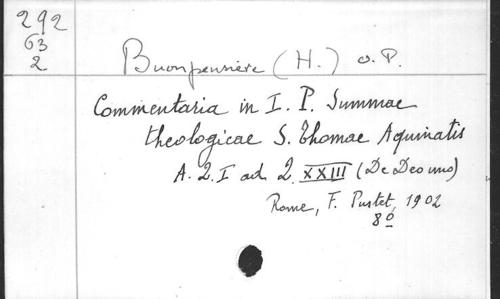 292
63
2
Buonpensiere (H.) O.P.
Commentaria in I. P. Summae
theologicae S. Thomae Aquinatis
A. Q. I ad Q. XXIII (De Deo uno)
Rome, F. Pustet, 1902
8º